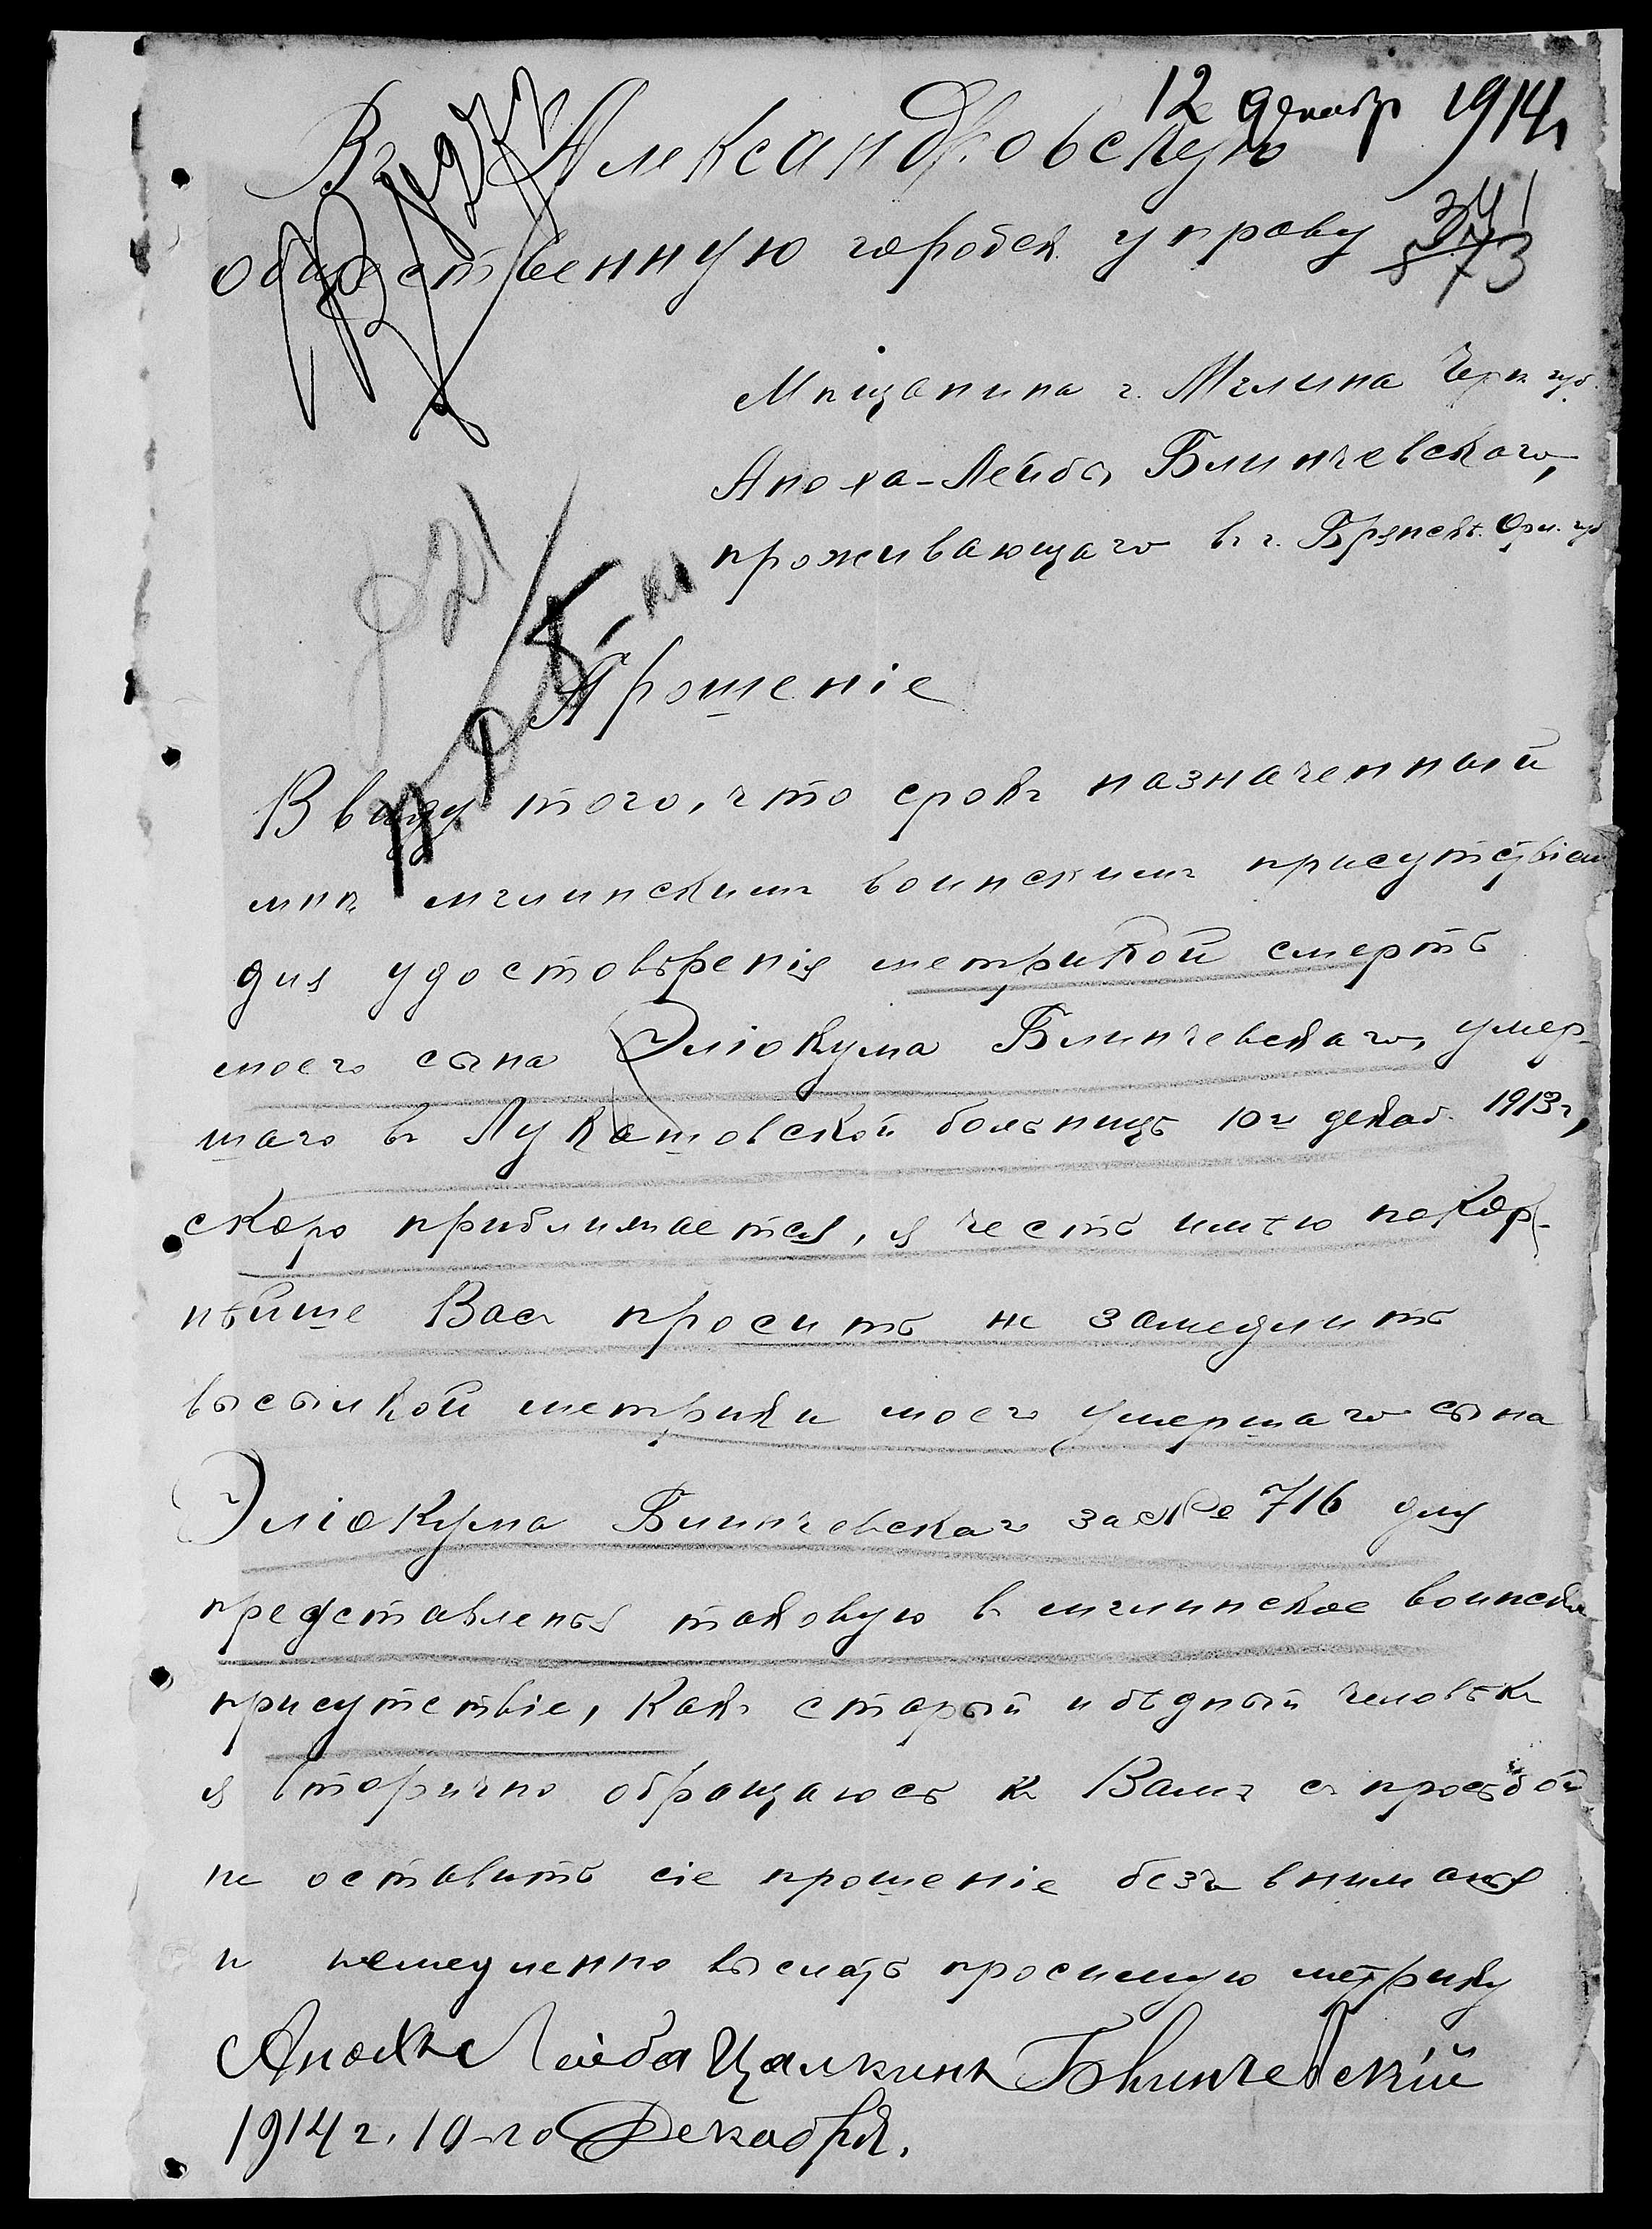 12 декабр 1914 г
Въ Александровскую
общественную городск. управу
341
873
Мѣщанина г. Мглина Черн. губ.
Аноха-Лейбы Блинчевскаго,
проживающаго въ г. Брянскѣ. Орл. губ
Прошеніе
В виду того, что срокъ назначенный
мнѣ мглинскимъ воинскимъ присутствіем
для удостовѣренія метрикой смерть
моего сына Эліокума Блинчевскаго, умер-
шаго въ Лукашовской больницѣ 10го декаб. 1913 г,
скоро приближается, я честь имѣю покор-
нѣйше Васъ просить не замедлить
высылкой метрики моего умершаго сына
Эліокума Блинчевскаго за № 716 для
представленья таковую в мглинское воинское
присутствіе, Какъ старый и бѣдный человѣкъ
я вторично обращаюсь къ Вамъ съ просьбой
не оставить сіе прошеніе безъ вниманья
и немедленно выслать просимую метрику
Анохъ Лейба Цалкинъ Блинчевскій
1914 г. 10-го Декабря.